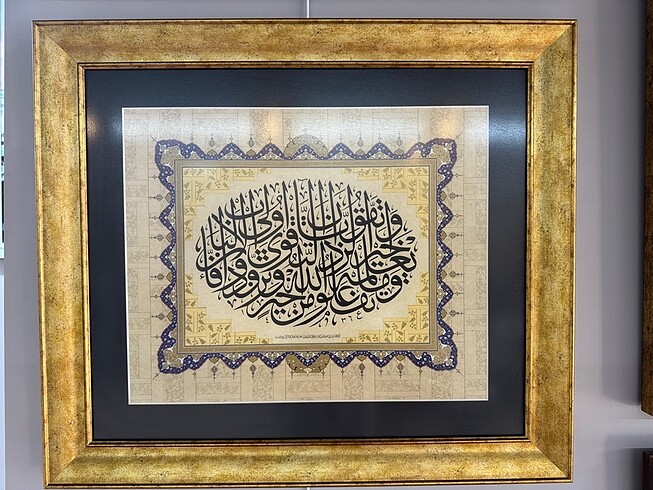 وما تفعلوا من خير يعلمه الله وتزودوا فإن خير الزاد التقوى واتقون يا أولي الألباب